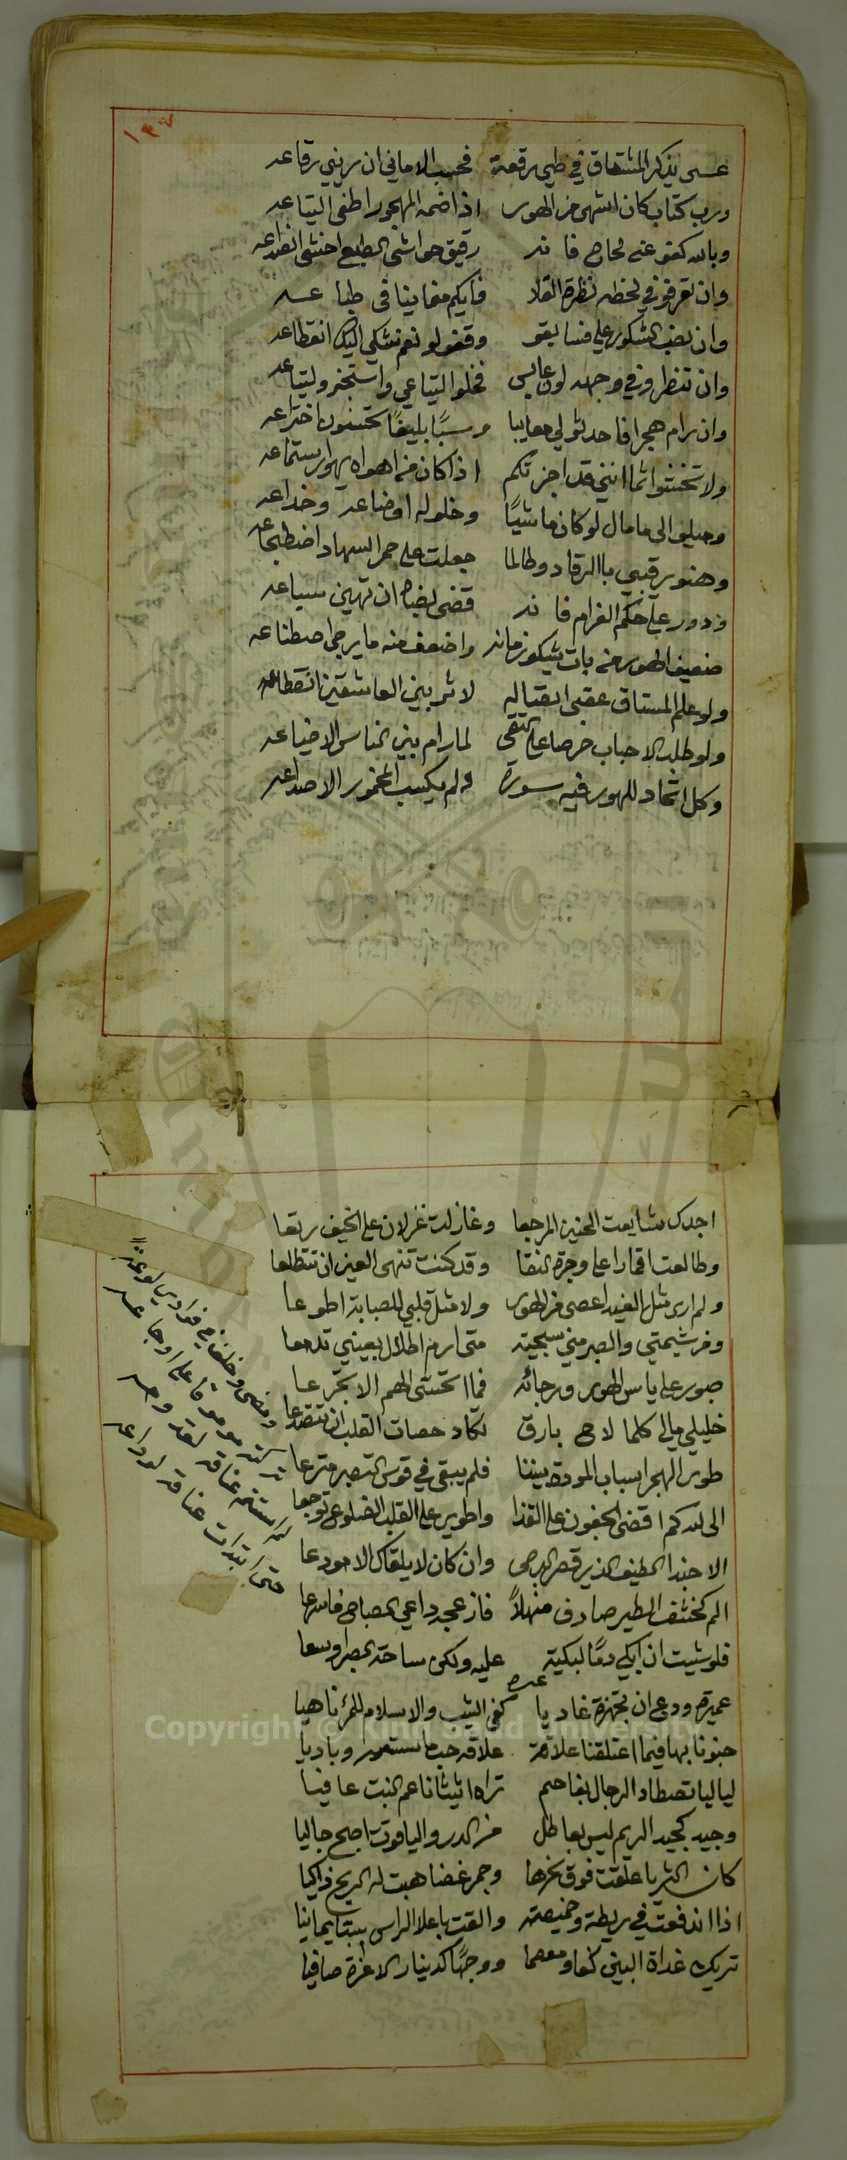 ١٣٧
عسى يذكر المشتاق في طي رقعة فحسب الاماني ان تريني رقاعه
ورب كتاب كان اشهى من الهوى اذا ضمه المهجور اطفى التياعه
وبالله كفو عن لجاج فانه رقيق حواشي الطبع اخشى انقداعه
وان تعرفو في لحظه نظرة القلا
وان تنظروا في وجهه لون عابس فخلوا التياعي واستجنوا ولتياعه
وان رام هجرا فاحدثو لي معايبا وسببا بليغا تحسنون اختراعه
ولا تخشوا اثما انني قد اجزتكم اذا كان من اهواه يهوى استماعه
وميلو الى ما مال لو كان ماشيًا وخلو له اوضاعه وخداعه
وهنو رقيبي بالرقاد وطالما جعلت على جمر السهاد اضطجاعه
ودور على حكم الغرام فانه قضى لضباه ان تهين سباعه
ضعيف الهوى من بات يشكو زمانه واضعف منه ما يرجى اصطناعه
ولو علم المستاق عقبى اتصاله لاثر بين العاشقين انقطاعه
ولو طلب الاحباب خرصا على التقى لما رام بين الناس الا ضياعه
وكل اتحاد للهوى فيه سورة ولم يكسب المخمور الا صداعه
اجدك شايعت الحنين المرجعا وغازلت غزلان على الخيف رتعا
وطالعت اقمارا على وجرة النقا وقد كنت تنهى العين ان تتطلعا
ولم ارى مثل الغيد اعصى من الهوى ولا مثل قلبي للصبابة اطوعا
ومن شيمتي والصبر مني سجية متى ارم اطلال بعيني تدمعا
صبور على ياس الهوى ورجائه فما اتحشى الهم الا تجرعا
خليلي مالي كلما لاح بارق تكاد حصات القلب ان تتصدعا
طوى الهجر اسباب المودة بيننا فلم يبقى في قوس التصبر منزعا
الى الله كم اقضي الجفون على القذا واطوي على القلب الضلوع توجعا
الا حبذا الطيف الذي قصر الدجى وان كان لا يلقاك الا مودعا
الم كخشف الطير صادف منهلاً فازعجه داعي الصباح فاسرعا
فلو شيت ان ابكي دمًا لبكيته عليه ولكن ساحة الصبر اوسعا
غيره
عميرة ودع ان تجهزة غاديا كفى الشيب والاسلام للمرئ ناهيا
جنونا بها فيما اعتلقنا علاقة علاقة حب مستسرا وباديا
ليالي تصطاد الرجال بفاحم تراه اثيثا ناعم النبت عافيا
وجيد كجيد الريم ليس بعاطل من الدر والياقوت اصبح حاليا
كان الثريا علقت فوق نحرها وجمر غضا هبت له الريح ذاكيا
اذا اندفعت في ريطة وخميصة والقت باعلا الراس سبتا يمانيا
تريك غداة البين كفا ومعصما ووجهًا كدينار الاعزة صافيا
ومضى وخلف في فؤادي لوعةً تركته موقوفا على اوجاعه
لم استتم عناقه لقدومه حتى ابتدات عناقه لوداعه
Copyright © King Saud University